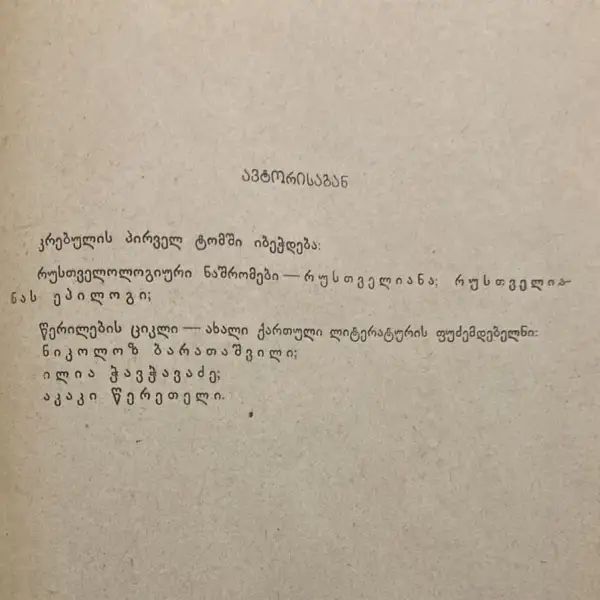 ავტორისაგან
კრებულის პირველ ტომში იბეჭდება:
რუსთველოლოგიური ნაშრომები — რუსთველიანა; რუსთველია-
ნას ეპილოგი;
წერილების ციკლი — ახალი ქართული ლიტერატურის ფუძემდებელნი:
ნიკოლოზ ბარათაშვილი;
ილია ჭავჭავაძე;
აკაკი წერეთელი.